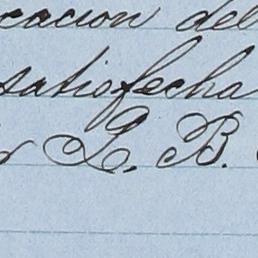 cacion del
satisfecha
L. B.